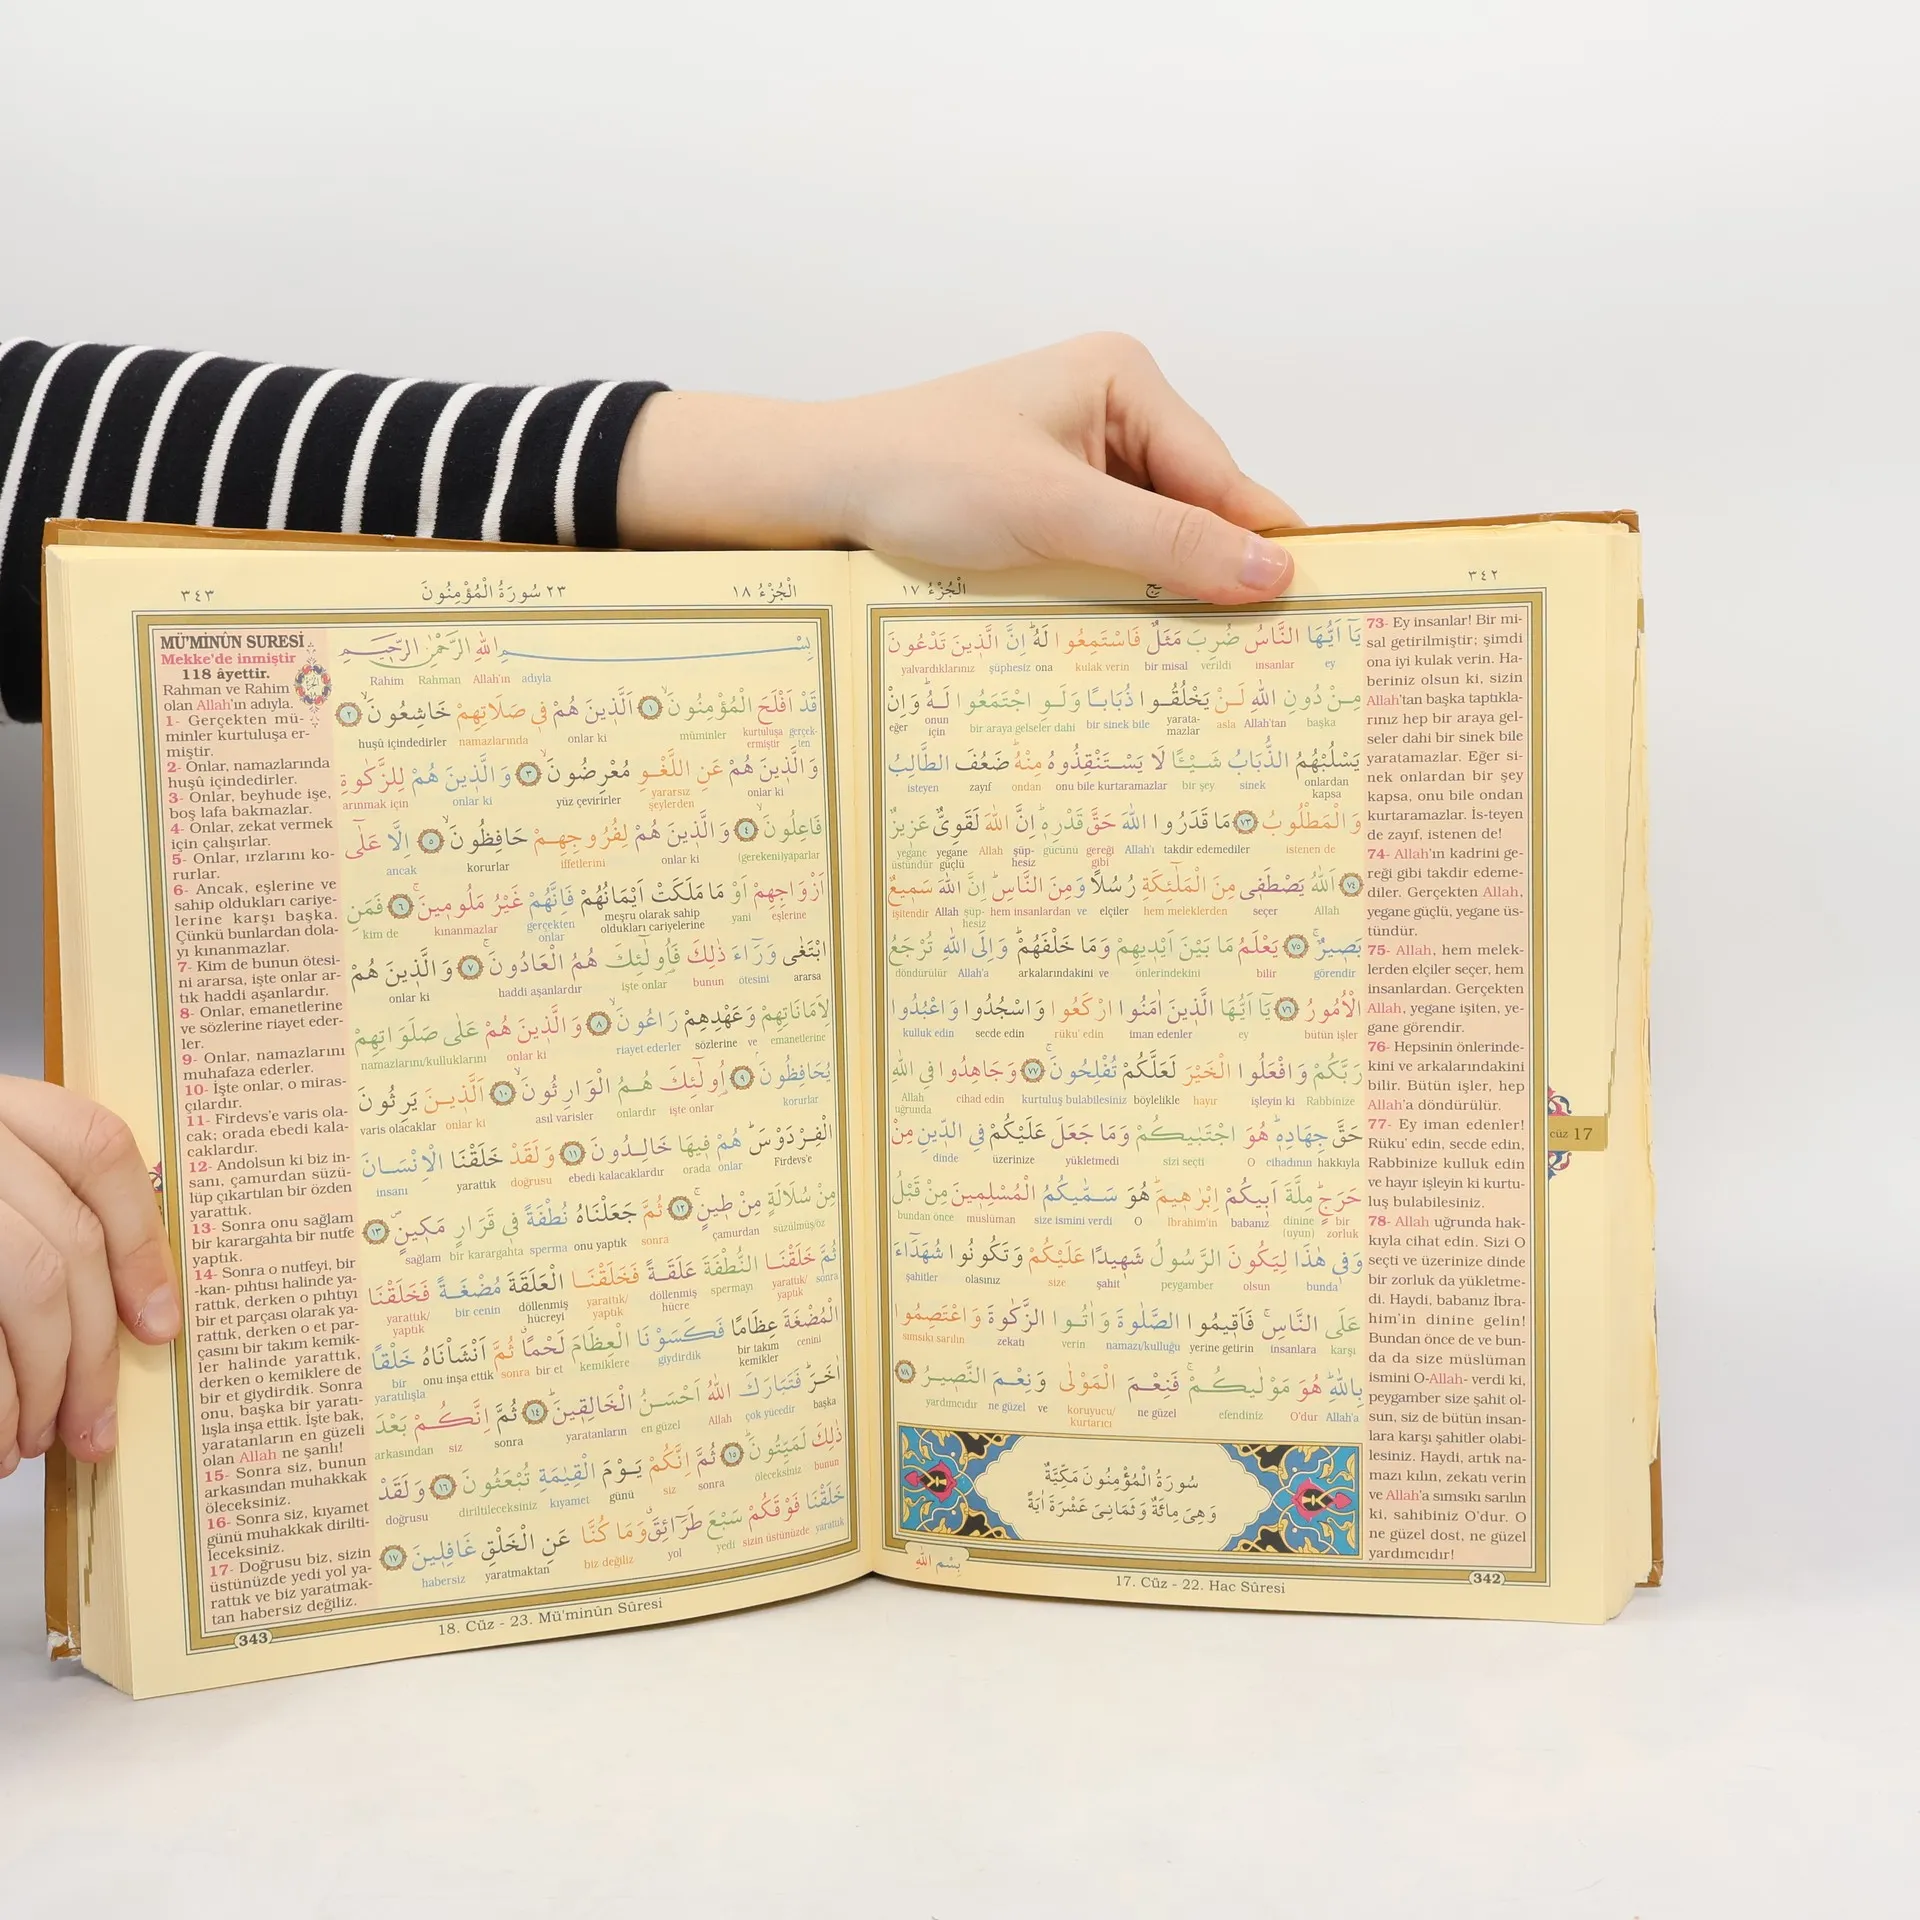 ٣٤٢
الْجُزْءُ ١٧
يَٓا اَيُّهَا النَّاسُ ضُرِبَ مَثَلٌ فَاسْتَمِعُوا لَهُۜ اِنَّ الَّذٖينَ تَدْعُونَ
ey insanlar verildi bir misal kulak verin ona şüphesiz yalvardıklarınız
مِنْ دُونِ اللّٰهِ لَنْ يَخْلُقُوا ذُبَابًا وَلَوِ اجْتَمَعُوا لَهُۜ وَاِنْ
başka Allah'tan asla yarata-mazlar bir sinek bile bir araya gelseler dahi onun için eğer
يَسْلُبْهُمُ الذُّبَابُ شَيْـًٔا لَا يَسْتَنْقِذُوهُ مِنْهُۜ ضَعُفَ الطَّالِبُ
onlardan kapsa sinek bir şey onu bile kurtaramazlar ondan zayıf isteyen
وَالْمَطْلُوبُ ٧٣ مَا قَدَرُوا اللّٰهَ حَقَّ قَدْرِهٖۜ اِنَّ اللّٰهَ لَقَوِيٌّ عَزٖيزٌ
istenen de takdir edemediler Allah'ı gereği gibi gücünü şüp-hesiz Allah yegane güçlü yegane üstündür
٧٤ اَللّٰهُ يَصْطَفٖي مِنَ الْمَلٰٓئِكَةِ رُسُلًا وَمِنَ النَّاسِۜ اِنَّ اللّٰهَ سَمٖيعٌ
Allah seçer hem meleklerden elçiler ve hem insanlardan şüp-hesiz Allah işitendir
بَصٖيرٌۚ ٧٥ يَعْلَمُ مَا بَيْنَ اَيْدٖيهِمْ وَمَا خَلْفَهُمْۜ وَاِلَى اللّٰهِ تُرْجَعُ
görendir bilir önlerindekini ve arkalarındakini Allah'a döndürülür
الْاُمُورُ ٧٦ يَٓا اَيُّهَا الَّذٖينَ اٰمَنُوا ارْكَعُوا وَاسْجُدُوا وَاعْبُدُوا
bütün işler ey iman edenler rüku' edin secde edin kulluk edin
رَبَّكُمْ وَافْعَلُوا الْخَيْرَ لَعَلَّكُمْ تُفْلِحُونَۚ ٧٧ وَجَاهِدُوا فِي اللّٰهِ
Rabbinize işleyin ki hayır böylelikle kurtuluş bulabilesiniz cihad edin Allah uğrunda
حَقَّ جِهَادِهٖۜ هُوَ اجْتَبٰيكُمْ وَمَا جَعَلَ عَلَيْكُمْ فِي الدّٖينِ مِنْ
hakkıyla cihadının O sizi seçti yükletmedi üzerinize dinde
حَرَجٍۜ مِلَّةَ اَبٖيكُمْ اِبْرٰهٖيمَۜ هُوَ سَمّٰيكُمُ الْمُسْلِمٖينَ مِنْ قَبْلُ
bir zorluk dinine (uyun) babanız İbrahim'in O size ismini verdi müslüman bundan önce
وَفٖي هٰذَا لِيَكُونَ الرَّسُولُ شَهٖيدًا عَلَيْكُمْ وَتَكُونُوا شُهَدَٓاءَ
bunda olsun peygamber şahit size olasınız şahitler
عَلَى النَّاسِۚ فَاَقٖيمُوا الصَّلٰوةَ وَاٰتُوا الزَّكٰوةَ وَاعْتَصِمُوا
karşı insanlara yerine getirin namazı/kulluğu verin zekatı sımsıkı sarılın
بِاللّٰهِۜ هُوَ مَوْلٰيكُمْۚ فَنِعْمَ الْمَوْلٰى وَنِعْمَ النَّصٖيرُ ٧٨
Allah'a O'dur efendiniz ne güzel koruyucu/kurtarıcı ve ne güzel yardımcıdır
سُورَةُ الْمُؤْمِنُونَ مَكِّيَّةٌ
وَهِيَ مِائَةٌ وَثَمَانِيَ عَشْرَةَ اٰيَةً
بِسْمِ اللّٰهِ
73- Ey insanlar! Bir mi-
sal getirilmiştir; şimdi
ona iyi kulak verin. Ha-
beriniz olsun ki, sizin
Allah'tan başka taptıkla-
rınız hep bir araya gel-
seler dahi bir sinek bile
yaratamazlar. Eğer si-
nek onlardan bir şey
kapsa, onu bile ondan
kurtaramazlar. İs-teyen
de zayıf, istenen de!
74- Allah'ın kadrini ge-
reği gibi takdir edeme-
diler. Gerçekten Allah,
yegane güçlü, yegane üs-
tündür.
75- Allah, hem melek-
lerden elçiler seçer, hem
insanlardan. Gerçekten
Allah, yegane işiten, ye-
gane görendir.
76- Hepsinin önlerinde-
kini ve arkalarındakini
bilir. Bütün işler, hep
Allah'a döndürülür.
77- Ey iman edenler!
Rüku' edin, secde edin,
Rabbinize kulluk edin
ve hayır işleyin ki kurtu-
luş bulabilesiniz.
78- Allah uğrunda hak-
kıyla cihat edin. Sizi O
seçti ve üzerinize dinde
bir zorluk da yükletme-
di. Haydi, babanız İbra-
him'in dinine gelin!
Bundan önce de ve bun-
da da size müslüman
ismini O-Allah- verdi ki,
peygamber size şahit ol-
sun, siz de bütün insan-
lara karşı şahitler olabi-
lesiniz. Haydi, artık na-
mazı kılın, zekatı verin
ve Allah'a sımsıkı sarılın
ki, sahibiniz O'dur. O
ne güzel dost, ne güzel
yardımcıdır!
cüz 17
17. Cüz - 22. Hac Sûresi
342
٣٤٣
٢٣ سُورَةُ الْمُؤْمِنُونَ
الْجُزْءُ ١٨
MÜ'MİNÛN SURESİ
Mekke'de inmiştir
118 âyettir.
Rahman ve Rahim
olan Allah'ın adıyla.
1- Gerçekten mü-
minler kurtuluşa er-
miştir.
2- Onlar, namazlarında
huşû içindedirler.
3- Onlar, beyhude işe,
boş lafa bakmazlar.
4- Onlar, zekat vermek
için çalışırlar.
5- Onlar, ırzlarını ko-
rurlar.
6- Ancak, eşlerine ve
sahip oldukları cariye-
lerine karşı başka.
Çünkü bunlardan dola-
yı kınanmazlar.
7- Kim de bunun ötesi-
ni ararsa, işte onlar ar-
tık haddi aşanlardır.
8- Onlar, emanetlerine
ve sözlerine riayet eder-
ler.
9- Onlar, namazlarını
muhafaza ederler.
10- İşte onlar, o miras-
çılardır.
11- Firdevs'e varis ola-
cak; orada ebedi kala-
caklardır.
12- Andolsun ki biz in-
sanı, çamurdan süzü-
lüp çıkartılan bir özden
yarattık.
13- Sonra onu sağlam
bir karargahta bir nutfe
yaptık.
14- Sonra o nutfeyi, bir
-kan- pıhtısı halinde ya-
rattık, derken o pıhtıyı
bir et parçası olarak ya-
rattık, derken o et par-
çasını bir takım kemik-
ler halinde yarattık,
derken o kemiklere de
bir et giydirdik. Sonra
onu, başka bir yaratı-
lışla inşa ettik. İşte bak,
yaratanların en güzeli
olan Allah ne şanlı!
15- Sonra siz, bunun
arkasından muhakkak
öleceksiniz.
16- Sonra siz, kıyamet
günü muhakkak dirilti-
leceksiniz.
17- Doğrusu biz, sizin
üstünüzde yedi yol ya-
rattık ve biz yaratmak-
tan habersiz değiliz.
بِسْمِ اللّٰهِ الرَّحْمٰنِ الرَّحٖيمِ
adıyla Allah'ın Rahman Rahim
قَدْ اَفْلَحَ الْمُؤْمِنُونَۙ ١ اَلَّذٖينَ هُمْ فٖي صَلَاتِهِمْ خَاشِعُونَۙ ٢
gerçek-ten kurtuluşa ermiştir müminler onlar ki namazlarında huşû içindedirler
وَالَّذٖينَ هُمْ عَنِ اللَّغْوِ مُعْرِضُونَ ٣ وَالَّذٖينَ هُمْ لِلزَّكٰوةِ
onlar ki yararsız şeylerden yüz çevirirler onlar ki arınmak için
فَاعِلُونَۙ ٤ وَالَّذٖينَ هُمْ لِفُرُوجِهِمْ حَافِظُونَۙ ٥ اِلَّا عَلٰٓى
(gerekeni)yaparlar onlar ki iffetlerini korurlar ancak
اَزْوَاجِهِمْ اَوْ مَا مَلَكَتْ اَيْمَانُهُمْ فَاِنَّهُمْ غَيْرُ مَلُومٖينَۚ ٦ فَمَنِ
eşlerine yani meşru olarak sahip oldukları cariyelerine gerçekten onlar kınanmazlar kim de
ابْتَغٰى وَرَٓاءَ ذٰلِكَ فَاُولٰٓئِكَ هُمُ الْعَادُونَۚ ٧ وَالَّذٖينَ هُمْ
ararsa ötesini bunun işte onlar haddi aşanlardır onlar ki
لِاَمَانَاتِهِمْ وَعَهْدِهِمْ رَاعُونَۙ ٨ وَالَّذٖينَ هُمْ عَلٰى صَلَوَاتِهِمْ
emanetlerine ve sözlerine riayet ederler onlar ki namazlarını/kulluklarını
يُحَافِظُونَۢ ٩ اُولٰٓئِكَ هُمُ الْوَارِثُونَۙ ١٠ اَلَّذٖينَ يَرِثُونَ
korurlar işte onlar onlardır asıl varisler onlar ki varis olacaklar
الْفِرْدَوْسَۜ هُمْ فٖيهَا خَالِدُونَ ١١ وَلَقَدْ خَلَقْنَا الْاِنْسَانَ
Firdevs'e onlar orada ebedi kalacaklardır doğrusu yarattık insanı
مِنْ سُلَالَةٍ مِنْ طٖينٍۚ ١٢ ثُمَّ جَعَلْنَاهُ نُطْفَةً فٖي قَرَارٍ مَكٖينٍ ١٣
süzülmüş/öz çamurdan sonra onu yaptık sperma bir karargahta sağlam
ثُمَّ خَلَقْنَا النُّطْفَةَ عَلَقَةً فَخَلَقْنَا الْعَلَقَةَ مُضْغَةً فَخَلَقْنَا
sonra yarattık/yaptık spermayı döllenmiş hücre yarattık/yaptık döllenmiş hücreyi bir cenin yarattık/yaptık
الْمُضْغَةَ عِظَامًا فَكَسَوْنَا الْعِظَامَ لَحْمًا ثُمَّ اَنْشَاْنَاهُ خَلْقًا
cenini bir takım kemikler giydirdik kemiklere bir et sonra onu inşa ettik bir yaratılışla
اٰخَرَۜ فَتَبَارَكَ اللّٰهُ اَحْسَنُ الْخَالِقٖينَۜ ١٤ ثُمَّ اِنَّكُمْ بَعْدَ
başka çok yücedir Allah en güzel yaratanların sonra siz arkasından
ذٰلِكَ لَمَيِّتُونَۜ ١٥ ثُمَّ اِنَّكُمْ يَوْمَ الْقِيٰمَةِ تُبْعَثُونَ ١٦ وَلَقَدْ
bunun öleceksiniz sonra siz günü kıyamet diriltileceksiniz doğrusu
خَلَقْنَا فَوْقَكُمْ سَبْعَ طَرَٓائِقَ وَمَا كُنَّا عَنِ الْخَلْقِ غَافِلٖينَ ١٧
yarattık sizin üstünüzde yedi yol biz değiliz yaratmaktan habersiz
18. Cüz - 23. Mü'minûn Sûresi
343